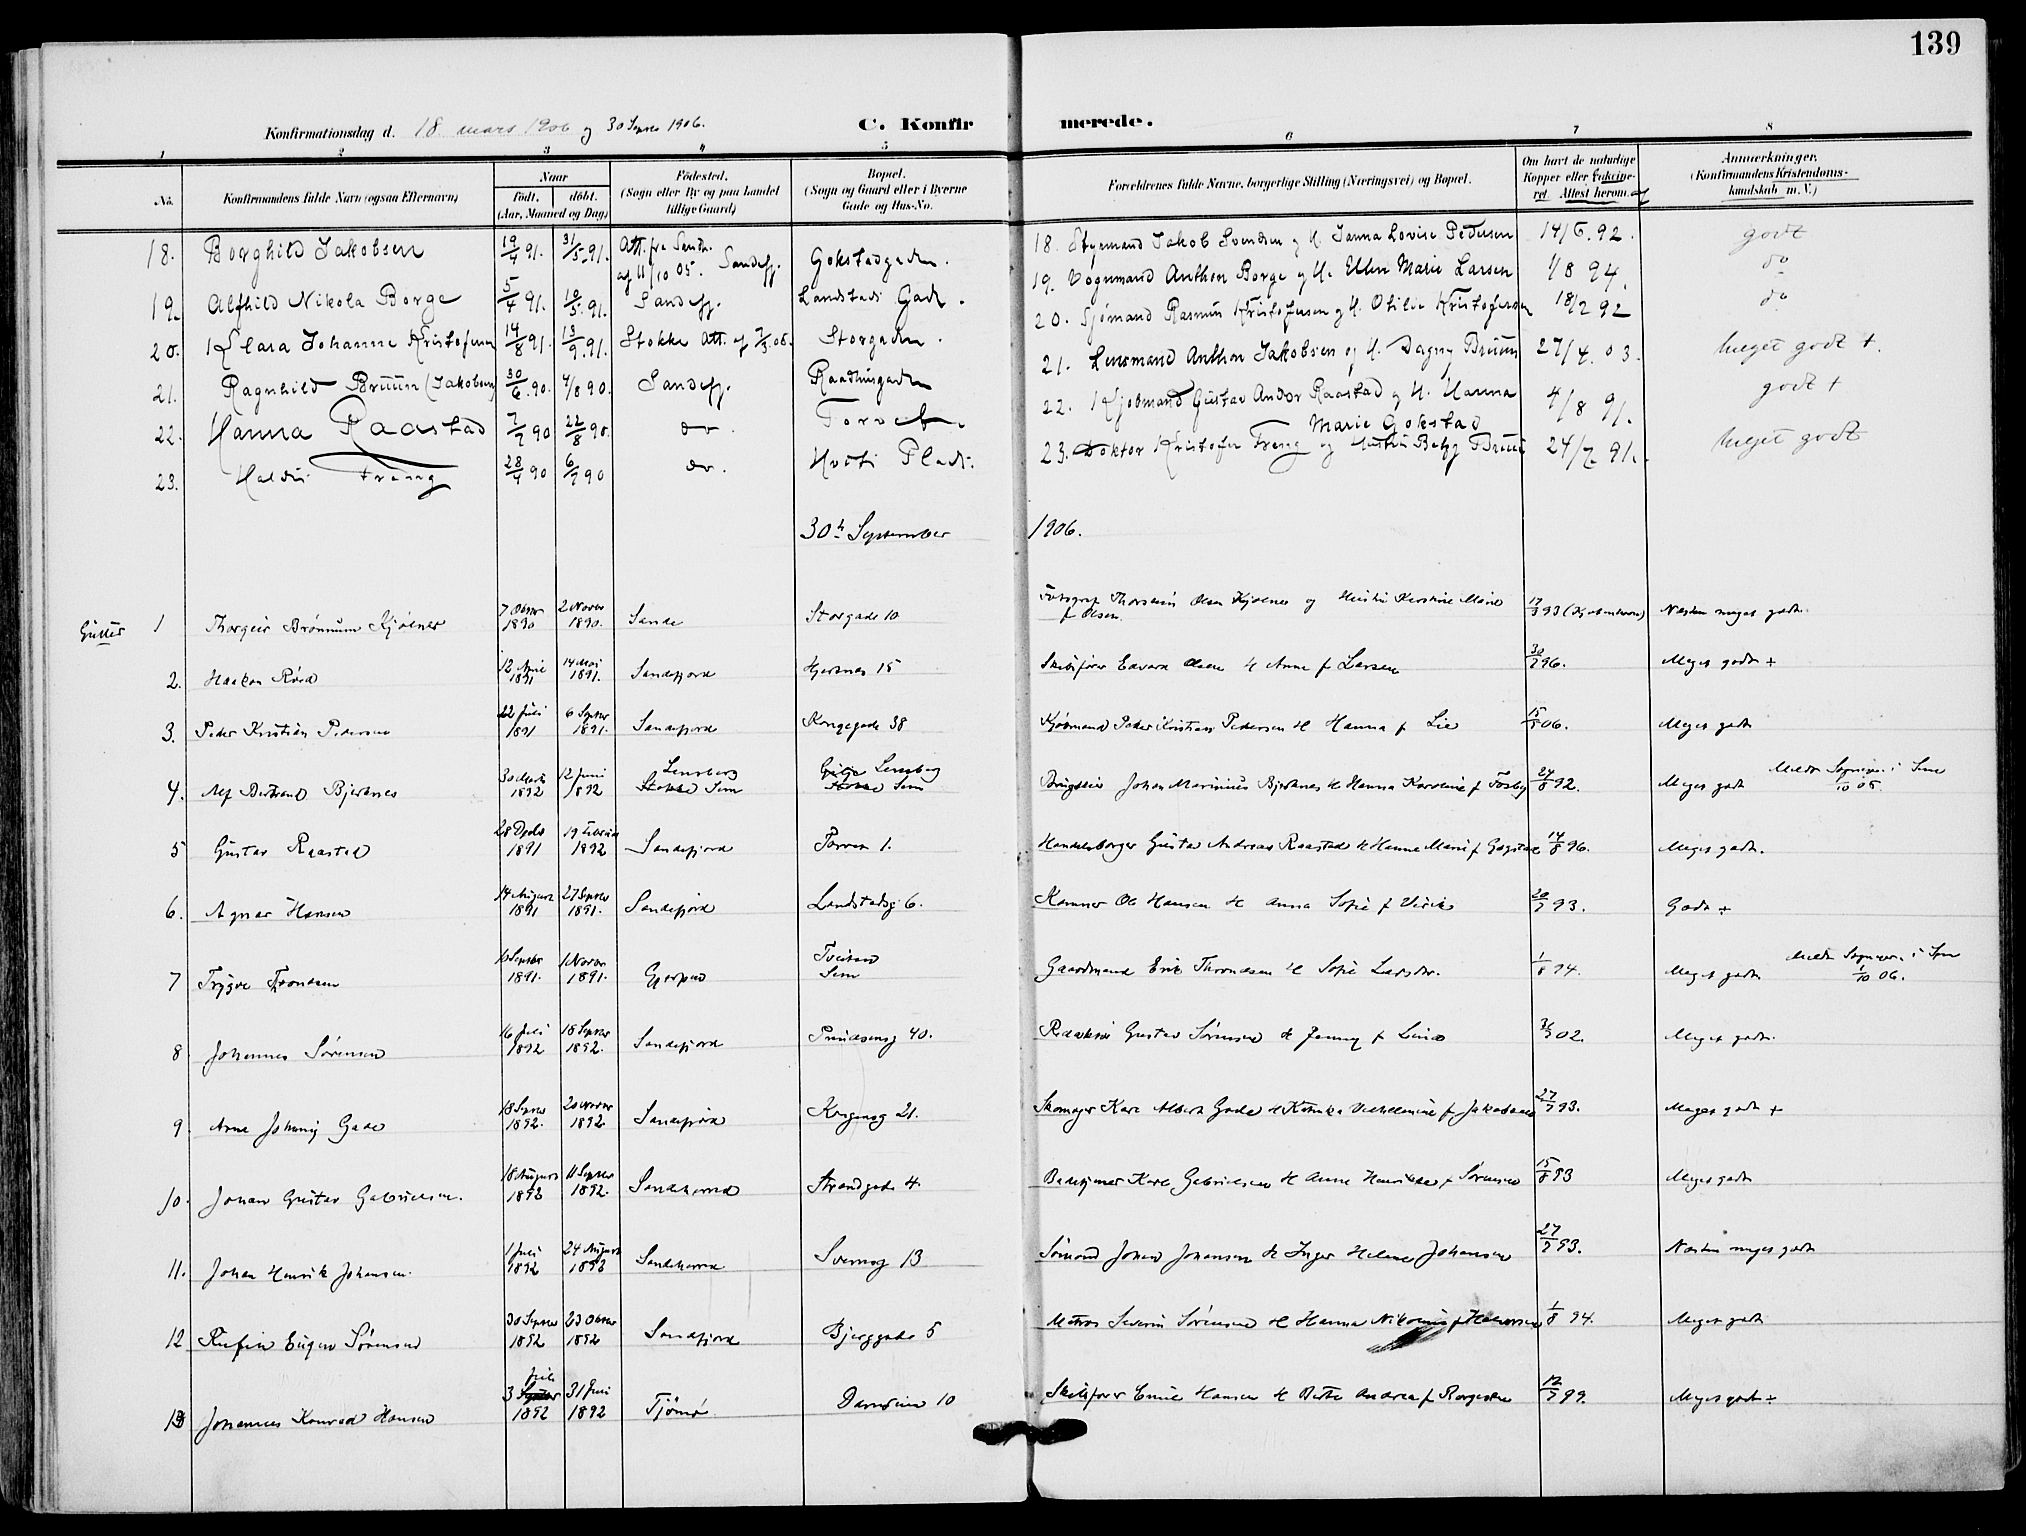 139
Konfirmationsdag d. 18 mars 1906 og 30 Septr 1906.
C. Konfirmerede.
1 2 3 4 5 6 7 8
No.
Konfirmandens fulde Navn (ogsaa Efternavn)
Naar
født. døbt.
(Aar, Maaned og Dag)
Fødested.
(Sogn eller By og paa Landet
tillige Gaard)
Bopæl.
(Sogn og Gaard eller i Byerne
Gade og Hus-No.
Forældrenes fulde Navne, borgerlige Stilling (Næringsvei) og Bopæl.
Om havt de naturlige
Kopper eller vakcine-
ret Attest herom.
Anmærkninger.
(Konfirmandens Kristendoms-
kundskab m. V.)
18. Borghild Jakobsen 19/4 91. 31/5 91. Att. fra Sandh. af 11/10 05. Sandefj. Gokstadgaden. 18. Styrmand Jakob Svendsen og H. Janna Lovise Pedersen 14/6. 92. godt
19. Alfhild Nikola Borge 5/4 91. 10/5. 91. Sandefj. Landstads Gade. 19. Vognmand Anthon Borge og H. Ellen Marie Larsen 1/8 94. do
20. Klara Johanne Kristofersen 14/8 91. 13/9. 91. Stokke Att. af 7/3. 06. Storgaden. 20. Sjømand Rasmus Kristofersen og H. Otilie Kristofersen 18/2 92 do
21. Ragnhild Bruun (Jakobsen) 30/6. 90. 4/8 90. Sandefj. Raadhusgaden 21. Lensmand Anthon Jakobsen og H. Dagny Bruun 27/4. 03. meget godt +.
22. Hanna Raastad 7/7 90 22/8 90. do. Torvet. 22. Kjøbmand Gustav Andor Raastad og H. Hanna Marie Gokstad 4/8 91. godt +
23. Haldis Freng 28/4 90 6/7 90 do. Hvits Plads. 23. Doktor Kristofer Freng og Hustru Betzy Bruun 24/7 91. meget godt
30te September 1906.
Gutter
1 Thorgeir Brønnum Kjølner 7 Oktbr 1890 2 Novbr 1890. Sande Storgade 10 Fotograf Thorstein Olsen Kjølner og Hustru Kirstine Marie f. Olsen. 17/3 93 (Kjøbenhavn) Næsten meget godt.
2. Haakon Röed 12 April 1891 14 Mai 1891. Sandefjord Hjertnes 15 Skibsfører Edvard Olsen H Anne f Larsen 30/7 96. Meget godt +
3. Peder Kristian Pedersen 22 Juli 1891 6 Septbr 1891. Sandefjord Kongegade 38 Kjøbmand Peder Kristian Pedersen H Hanna f Lie 15/8 06. Meget godt
4. Alf Bertrand Bjerknes 30 Marts 1892 12 Juni 1892 Lensberg Stokke Sem Lensberg Stokke Sem Brugseier Johan Marinius Bjerknes H Hanna Karoline f Foslyg 24/8 92. Meget godt Meldt Sognepr. i Sem 1/10 06.
5 Gustav Raastad 28 Decbr 1891 19 Februar 1892 Sandefjord Torvet 1. Handelsborger Gustav Andreas Raastad H Hanna Marie f Gogstad 14/8 96. Meget godt.
6. Agnar Hansen 14 August 1891 27 Septbr 1891. Sandefjord Landstadsg 6. Ole Hansen H Anna Sofie f 20/7 93. Godt +
7 Trygve Trondsen Septbr 1891. 1 Novbr 1891. Gjerpen Tveitan Sem Gaardmand Erik Throndsen H Sofie Larsdtr. 1/8 94. Meget godt Meldt Sognepr. i Sem 1/10 06.
8 Johannes Sørensen 16 Juli 1892 18 Septbr 1892. Sandefjord 40. Redaktør Gustav Sørensen H Jenny f Lund 02. Meget godt.
9 Arne Johanny Gade 18 Septbr 1892. 20 Novbr 1892 Sandefjord Kongensg 21. Skomager Karl Albert Gade H Katinka Vilhelmine f Jakobsen 27/7 93. Meget godt +
10. Johan Gustav Gabrielsen. 18 August 1892 11 Septbr 1892. Sandeherred Strandgade 4. Karl Gabrielsen H Anne Henrikke f Sørensen 15/8 93 Meget godt
11. Johan Henrik Johansen. 1 Juli 1892 24 August 1892 Sandeherred 13 Sømand Johan Johansen H Inger Helene Johansen 27/7 93. Næsten meget godt
12 Rufin Eugen Sørensen 30 Septbr 1892 23 Oktbr 1892 Sandefjord Bjerggade 5 Matros Severin Sørensen H Hanna Nikoline f Halvorsen 1/8 94. Meget godt
13 Johannes Konrad Hansen 3 Juli 1892 31 Juli 1892 Tjømø 10 Skibsfører Emil Hansen H Berthe Andrea f Borgersen 12/9 99. Meget godt +